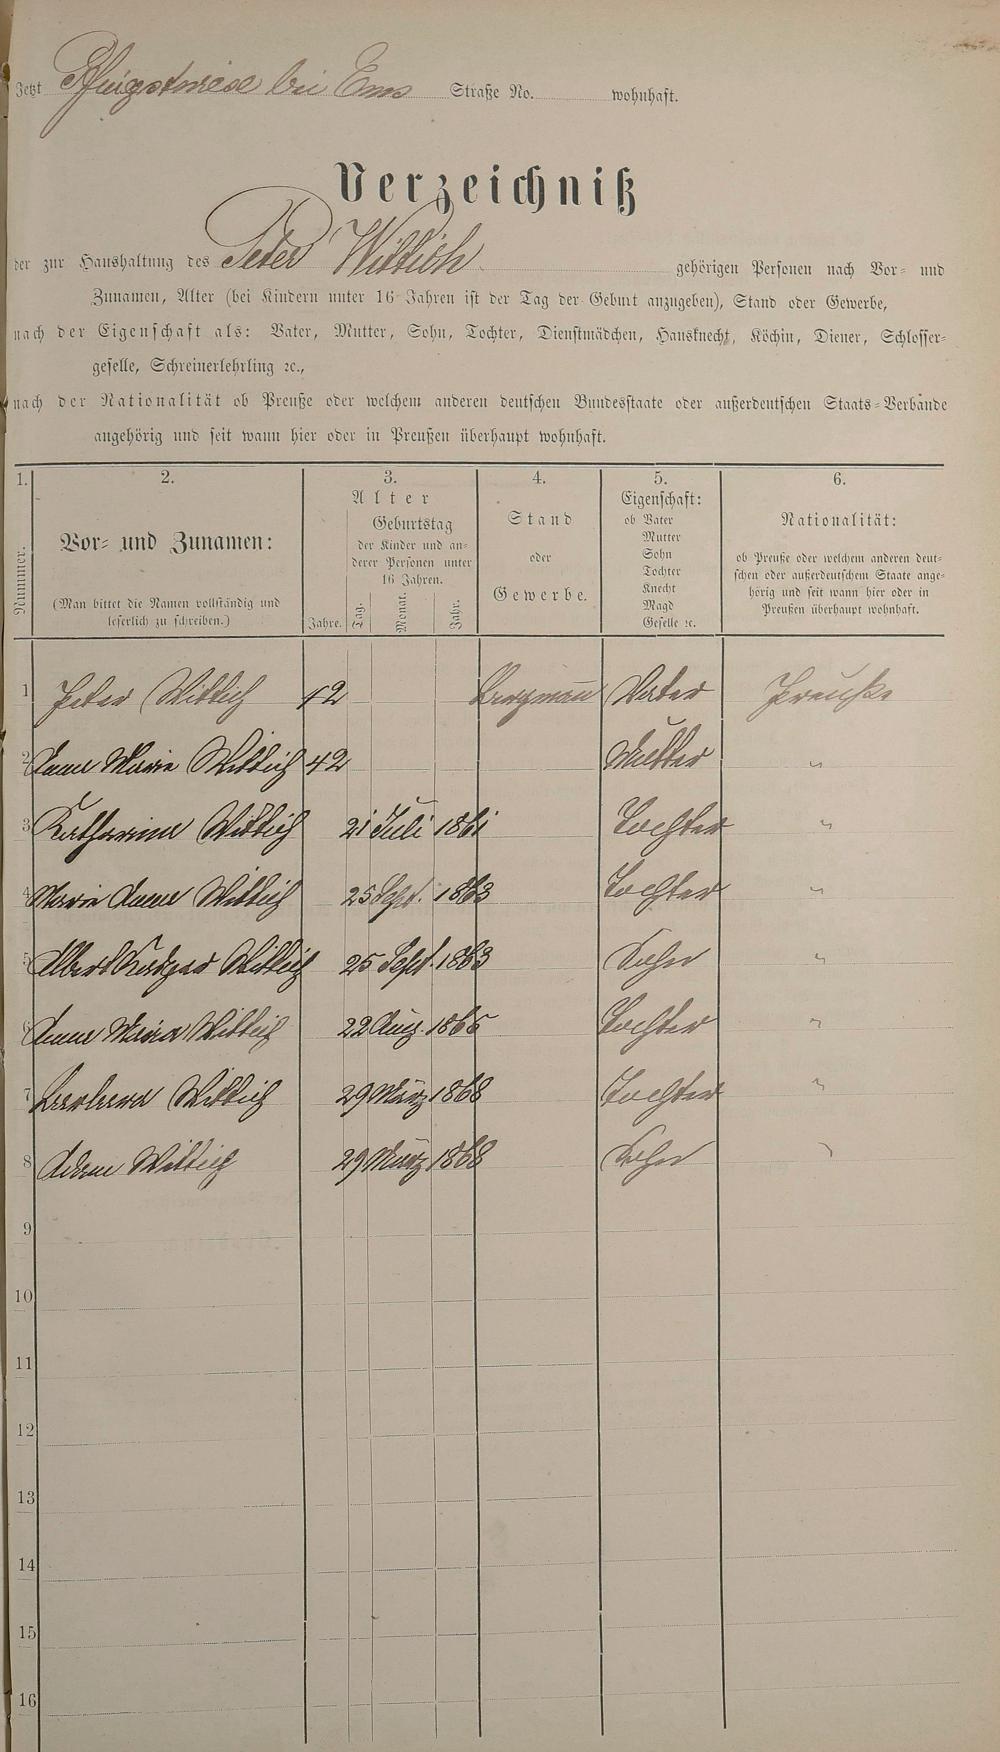 Jetzt Pfingstwiese bei Ems Straße No. wohnhaft.
Verzeichniß
der zur Haushaltung des Peter Wittich gehörigen Personen nach Vor- und
Zunamen, Alter (bei Kindern unter 16 Jahren ist der Tag der Geburt anzugeben), Stand oder Gewerbe,
nach der Eigenschaft als: Vater, Mutter, Sohn, Tochter, Dienstmädchen, Hausknecht, Köchin, Diener, Schlosser-
geselle, Schreinerlehrling ꝛc.,
nach der Nationalität ob Preuße oder welchem anderen deutschen Bundesstaate oder außerdeutschen Staats-Verbände
angehörig und seit wann hier oder in Preußen überhaupt wohnhaft.
1. 2. 3. 4. 5. 6.
Nummer.
Vor- und Zunamen:
(Man bittet die Namen vollständig und
leserlich zu schreiben.)
Alter
Jahre.
Geburtstag
der Kinder und an-
derer Personen unter
16 Jahren.
Tag. Monat. Jahr.
Stand
oder
Gewerbe.
Eigenschaft:
ob Vater
Mutter
Sohn
Tochter
Knecht
Magd
Geselle ꝛc.
Nationalität:
ob Preuße oder welchem anderen deut-
schen oder außerdeutschem Staate ange-
hörig und seit wann hier oder in
Preußen überhaupt wohnhaft.
1 Peter Wittich 42 Bergmann Vater Preuße
2 Anna Maria Wittich 42 Mutter "
3 Katharina Wittich 21 Juli 1861 Tochter "
4 Maria Anna Wittich 25 Sept. 1863 Tochter "
5 Albert Wittich 25 Sept. 1863 Sohn "
6 Anna Maria Wittich 22 Aug. 1865 Tochter "
7 Barbara Wittich 29 März 1868 Tochter "
8 Adam Wittich 29 März 1868 Sohn "
9
10
11
12
13
14
15
16